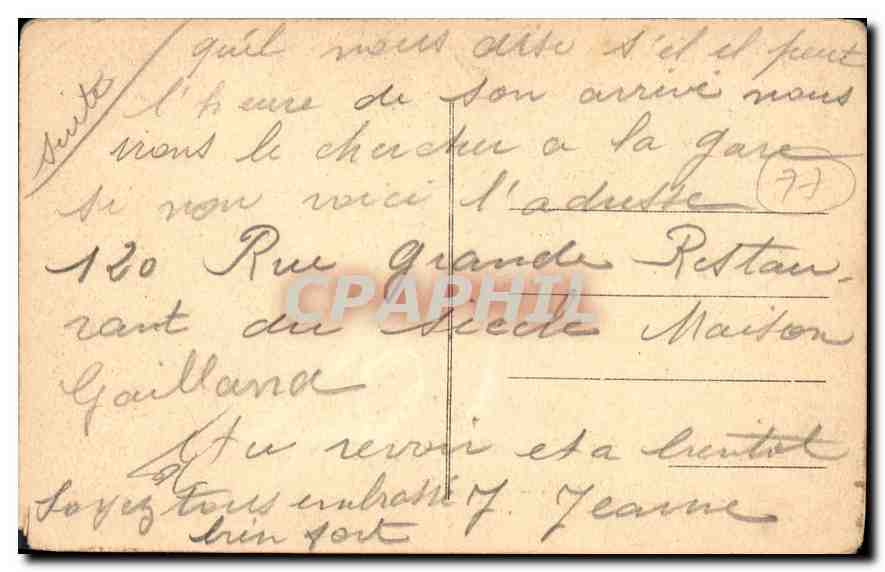 suite
qu'il nous dise s'il il peut
l'heure de son arrivé nous
irons le chercher a la gare
si non voici l'adresse
77
120 Rue Grande Restau-
rant du Siecle Maison
Gailland
CPAPHIL
Au revoir et a bientot
Soyez tous embrassé J. Jeanne
bien fort